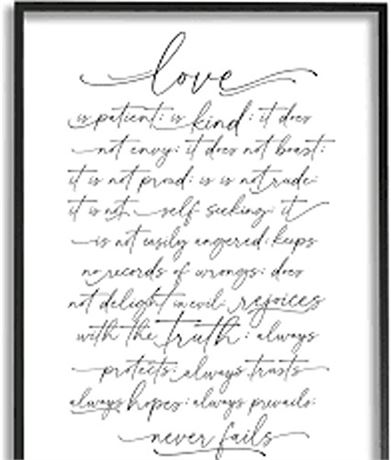 love
is patient: is kind: it does
not envy: it does not boast:
it is not proud: is is not rude:
it is not self seeking: it
is not easily angered: keeps
no records of wrongs: does
not delight in evil: rejoices
with the truth: always
protects: always trusts
always hopes: always prevails:
never fails